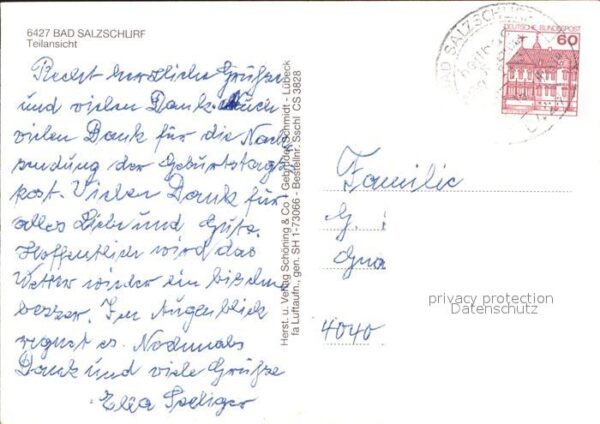 6427 BAD SALZSCHLIRF
Teilansicht
Recht herzliche Grüße
und vielen Dank. Auch
vielen Dank für die Nach
sendung der Geburtstags
post. Vielen Dank für
alles Liebe und Gute.
Hoffentlich wird das
Wetter wieder ein bischen
besser. Im Augenblick
regnet es. Nochmals
Dank und viele Grüße
Herst. u. Verlag Schöning & Co · Gebrüder Schmidt - Lübeck
fa Luftaufn., gen. SH 1-73066 - Bestellnr. Sschl CS 3828
BAD SALZSCHLIRF
DEUTSCHE BUNDESPOST
60
Familie
G.
Gna
4040
privacy protection
Datenschutz